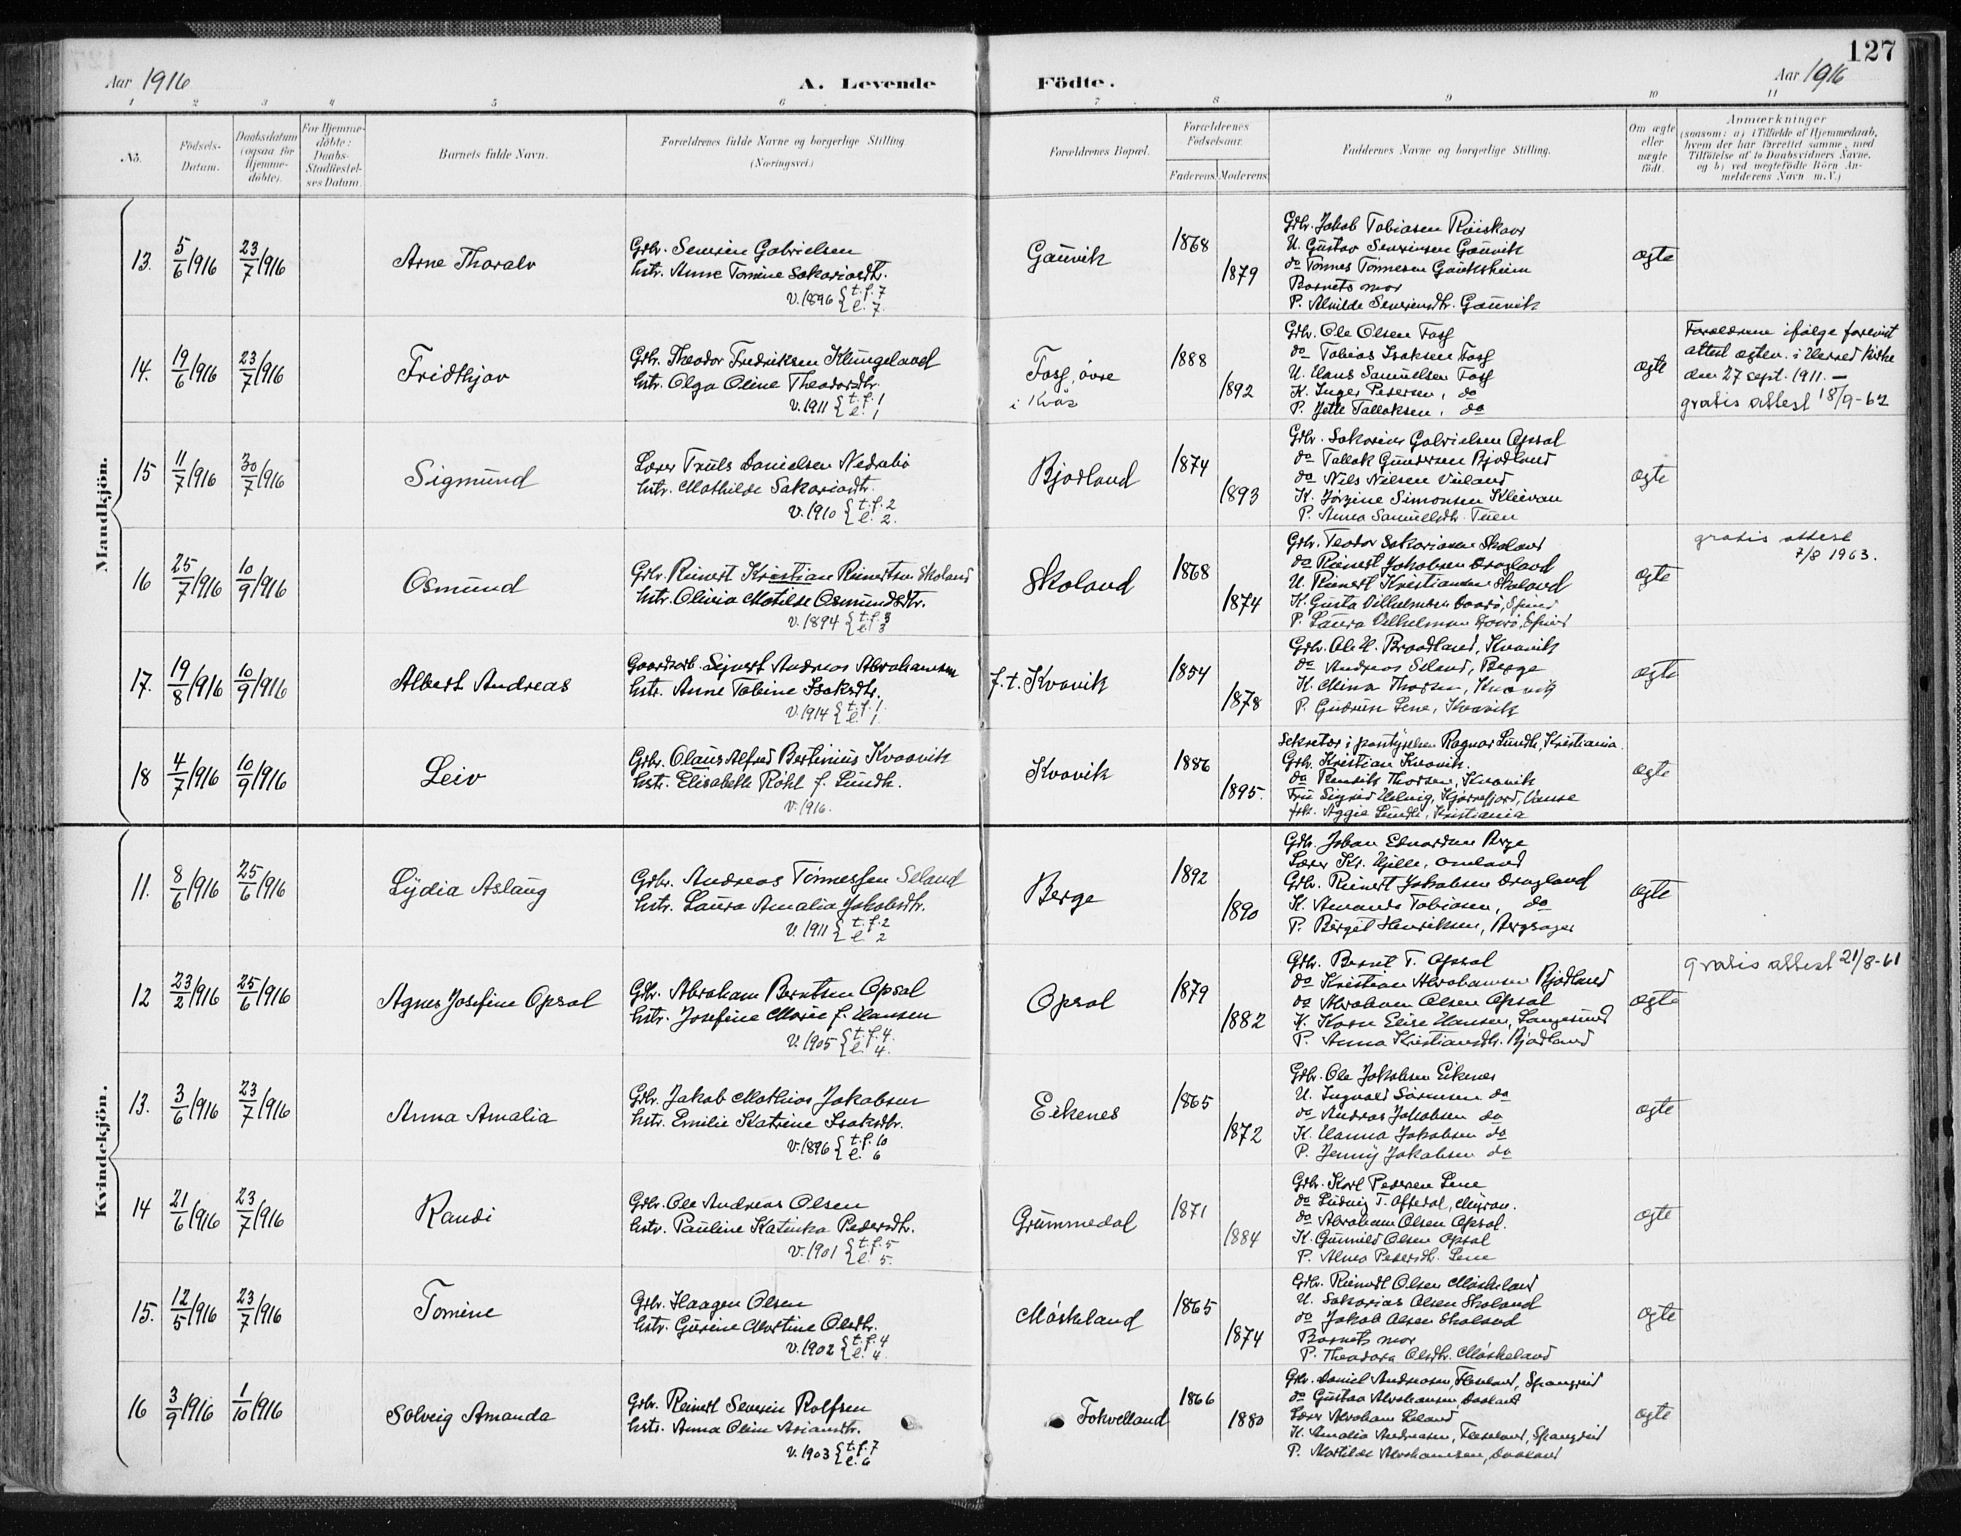 127
Aar 1916
A. Levende
Födte.
Aar 1916
1 2 3 4 5 6 7 8 9 10 11
No.
Födsels-
Datum.
Daabsdatum
(ogsaa for
Hjemme-
döbte).
For Hjemme-
döbte:
Daabs-
Stadfæstel-
ses Datum.
Barnets fulde Navn.
Forældrenes fulde Navne og borgerlige Stilling
(Næringsvei.)
Forældrenes Bopæl.
Forældrenes
Födselsaar.
Faderens
Moderens
Faddernes Navne og borgerlige Stilling.
Om ægte
eller
uægte
födt.
Anmærkninger
(saasom: a) i Tilfælde af Hjemmedaab,
hvem der har forrettet samme, med
Tilföielse af to Daabsvidners Navne,
og b) ved uægtefödte Börn An-
melderens Navn m. V.)
Mandkjön.
13.
5/6 1916
23/7 1916
Arne Thoralv
Grbr. Severin Gabrielsen
hstr. Anne Tomine Sakariasdtr.
v. 1896 { t.f. 7
l. 7.
Gauvik
1868
1879
Grbr. Jakob Tobiasen Röiskaar
U. Gustav Severinsen Gauvik
do Tönnes Tönnesen Gauksheim
Barnets mor
P. Alvilde Severinsdtr. Gauvik
ægte
14.
19/6 1916
23/7 1916
Fridthjov
Grbr. Theodor Fredriksen Klungeland
hstr. Olga Oline Theodorsdtr.
v. 1911 { t.f. 1
l. 1
Foss, övre
i Kvås
1888
1892
Grbr. Ole Olsen Foss
do Tobias Isaksen Foss
U. Hans Samuelsen Foss
K. Inger Pedersen, do
P. Jette Tallaksen, do
ægte
Forældrene ifölge forevist
attest ægtev. i Herred kirke
den 27 sept. 1911. —
gratis attest 18/9-62
15
11/7 1916
30/7 1916
Sigmund
Lærer Truls Danielsen Nedrebö
hstr. Mathilde Sakariasdtr.
v. 1910 { t.f. 2
l. 2.
Bjodland
1874
1893
Grbr. Sakarias Gabrielsen Opsal
do Tallak Gundersen Bjodland
do Nils Nilsen Viuland
K. Jörgine Simonsen Kleivan
P. Anna Samuelsdtr. Tuen
ægte
16
25/7 1916
10/9 1916
Osmund
Grbr. Reinert Kristian Reinertsen Skoland
hstr. Olivia Matilde Osmundsdtr.
v. 1894 { t.f. 3
l. 3
Skoland
1868
1874
Grbr. Teodor Sakariasen Skoland
do Reinert Jakobsen Dragland
U. Reinert Kristiansen Skoland
K. Gusta Vilhelmsen
P. Laura Vilhelmsen
ægte
gratis attest
7/8 1963.
17.
19/8 1916
10/9 1916
Albert Andreas
Gaardarb. Sigvert Andreas Abrahamsen
hstr. Anne Tobine Isaksdtr.
v. 1914 { t.f. 1.
l. 1
f.t. Kvavik
1854
1878
Grbr. Ole H. Braadland, Kvavik
do Andreas Seland, Berge
K. Mina Thorsen, Kvavik
P. Gudrun Lene, Kvavik
ægte
18
4/7 1916
10/9 1916
Leiv
Grbr. Olaus Alfred Bertinius Kvaavik
hstr. Elisabeth Röhl f. Lundh.
v. 1916.
Kvavik
1886
1895.
Sekretær i Ragnar Lundh, Kristiania.
Grbr. Kristian Kvavik.
do Thorsen, Kvavik
Fru Sigrid Helvig, Kjörrefjord, Vanse
frk. Aggie Lundh, Kristiania
ægte
Kvindekjön.
11.
8/6 1916
25/6 1916
Lydia Aslaug
Grbr. Andreas Tönnessen Seland
hstr. Laura Amalia Jakobsdtr.
v. 1911 { t.f. 2
l. 2
Berge
1892
1890
Grbr. Johan Edvardsen Berge
Lærer Kr. Hjelle, Omland
Grbr. Reinert Jakobsen Dragland
K. Amanda Tobiasen, do
P. Bergit Henriksen, Bergsager
ægte
12
23/2 1916
25/6 1916
Agnes Josefine Opsal
Grbr. Abraham Berntsen Opsal
hstr. Josefine Marie f. Hansen
v. 1905 { t.f. 4.
l. 4.
Opsal
1879
1882
Grbr. Bernt T. Opsal
do Kristian Abrahamsen Bjodland
do Abraham Olsen Opsal
K. Karn Elise Hansen, Langesund
P. Anna Kristiansdtr. Bjodland
ægte
gratis attest 21/8-61
13.
3/6 1916
23/7 1916
Anna Amalia
Grbr. Jakob Mathias Jakobsen
hstr. Emilie Katrine Isaksdtr.
v. 1896 { t.f. 10
l. 6
Eikenes
1865
1872
Grbr. Ole Jakobsen Eikenes
U. Ingvald Sörensen do
do Andreas Jakobsen do
K. Hanna Jakobsen do
P. Jenny Jakobsen do
ægte
14
21/6 1916
23/7 1916
Randi
Grbr. Ole Andreas Olsen
hstr. Pauline Katinka Pedersdtr.
v. 1901 { t.f. 5
l. 5.
Grummedal
1871
1884
Grbr. Karl Pedersen Lene
do Ludvig T. Oftedal, Myran.
do Abraham Olsen Opsal.
K. Gunvild Olsen Opsal
P. Alma Pedersdtr. Lene
ægte
15.
12/5 1916
23/7 1916
Tomine
Grbr. Haagen Olsen
hstr. Gurine Martine Olsdtr.
v. 1902 { t.f. 4
l. 4.
Möskeland
1865
1874
Grbr. Reinert Olsen Möskeland
U. Sakarias Olsen Skoland
do Jakob Olsen Skoland
Barnets mor
P. Theodora Olsdtr. Möskeland
ægte
16
3/9 1916
1/10 1916
Solveig Amanda
Grbr. Reinert Severin Rolfsen
hstr. Anna Oline Asiansdtr.
v. 1903 { t.f. 7
l. 6
Fokvelland
1866
1880
Grbr. Daniel Andreasen, Spangreid
do Gustav Abrahamsen,
Lærer Abraham Seland
K. Amalia Andreasen, Spangreid
P. Matilde Abrahamsen,
ægte